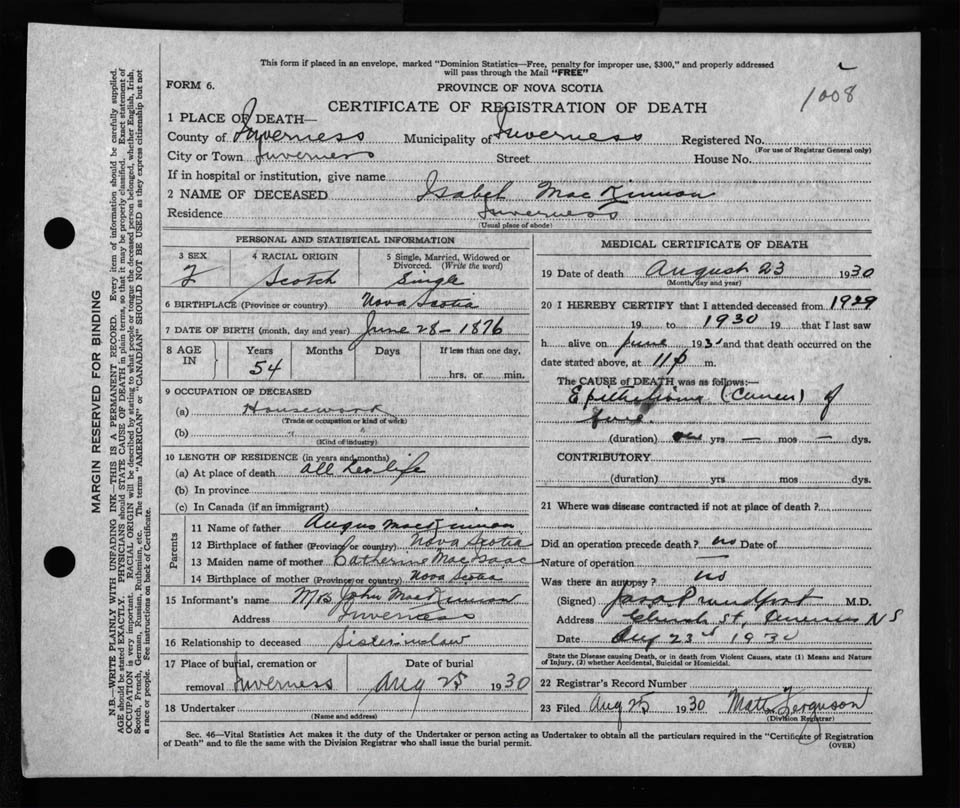 This form if placed in an envelope, marked "Dominion Statistics—Free, penalty for improper use, $300," and properly addressed
will pass through the Mail "FREE"
FORM 6.
PROVINCE OF NOVA SCOTIA
1008
CERTIFICATE OF REGISTRATION OF DEATH
1 PLACE OF DEATH—
County of Inverness Municipality of Inverness Registered No.
(For use of Registrar General only)
City or Town Inverness Street House No.
If in hospital or institution, give name
2 NAME OF DECEASED Isabel MacKinnon
Residence Inverness
(Usual place of abode)
PERSONAL AND STATISTICAL INFORMATION
3 SEX 4 RACIAL ORIGIN 5 Single, Married, Widowed or
Divorced. (Write the word)
F Scotch Single
6 BIRTHPLACE (Province or country) Nova Scotia
7 DATE OF BIRTH (month, day and year) June 28 – 1876
8 AGE IN Years Months Days If less than one day,
54 hrs. or min.
9 OCCUPATION OF DECEASED
(a) Housework
(Trade or occupation or kind of work)
(b) " "
(Kind of industry)
10 LENGTH OF RESIDENCE (in years and months)
(a) At place of death all her life
(b) In province
(c) In Canada (if an immigrant)
Parents
11 Name of father Angus MacKinnon
12 Birthplace of father (Province or country) Nova Scotia
13 Maiden name of mother Catherine MacIsaac
14 Birthplace of mother (Province or country) Nova Scotia
15 Informant's name Mrs John MacKinnon
Address Inverness
16 Relationship to deceased Sister in law
17 Place of burial, cremation or Date of burial
removal Inverness Aug 25 1930
18 Undertaker
(Name and address)
MEDICAL CERTIFICATE OF DEATH
19 Date of death August 23 1930
(Month, day and year)
20 I HEREBY CERTIFY that I attended deceased from 1929
19 to 1930 19 that I last saw
h alive on June 193 and that death occurred on the
date stated above, at 11 p m.
The CAUSE of DEATH was as follows:—
Epithelioma (Cancer) of
(duration) one yrs – mos – dys.
CONTRIBUTORY
(duration) yrs mos dys.
21 Where was disease contracted if not at place of death?
Did an operation precede death? no Date of
Nature of operation —
Was there an autopsy? no
(Signed) M.D.
Address Church St, Inverness N S
Date Aug 23rd 1930
State the Disease causing Death, or in death from Violent Causes, state (1) Means and Nature
of Injury, (2) whether Accidental, Suicidal or Homicidal.
22 Registrar's Record Number
23 Filed Aug 25 1930 Matt Ferguson
(Division Registrar)
Sec. 46—Vital Statistics Act makes it the duty of the Undertaker or person acting as Undertaker to obtain all the particulars required in the "Certificate of Registration
of Death" and to file the same with the Division Registrar who shall issue the burial permit.
(OVER)
MARGIN RESERVED FOR BINDING
N.B.—WRITE PLAINLY WITH UNFADING INK—THIS IS A PERMANENT RECORD. Every item of information should be carefully supplied.
AGE should be stated EXACTLY. PHYSICIANS should STATE CAUSE OF DEATH in plain terms, so that it may be properly classified. Exact statement of
OCCUPATION is very important. RACIAL ORIGIN will be described by stating to what people or tongue the deceased person belonged, whether English, Irish,
Scotch, French, German, Russian, Ruthenian, etc. The terms "AMERICAN" or "CANADIAN" SHOULD NOT BE USED as they express citizenship but not
a race or people. See instructions on back of Certificate.